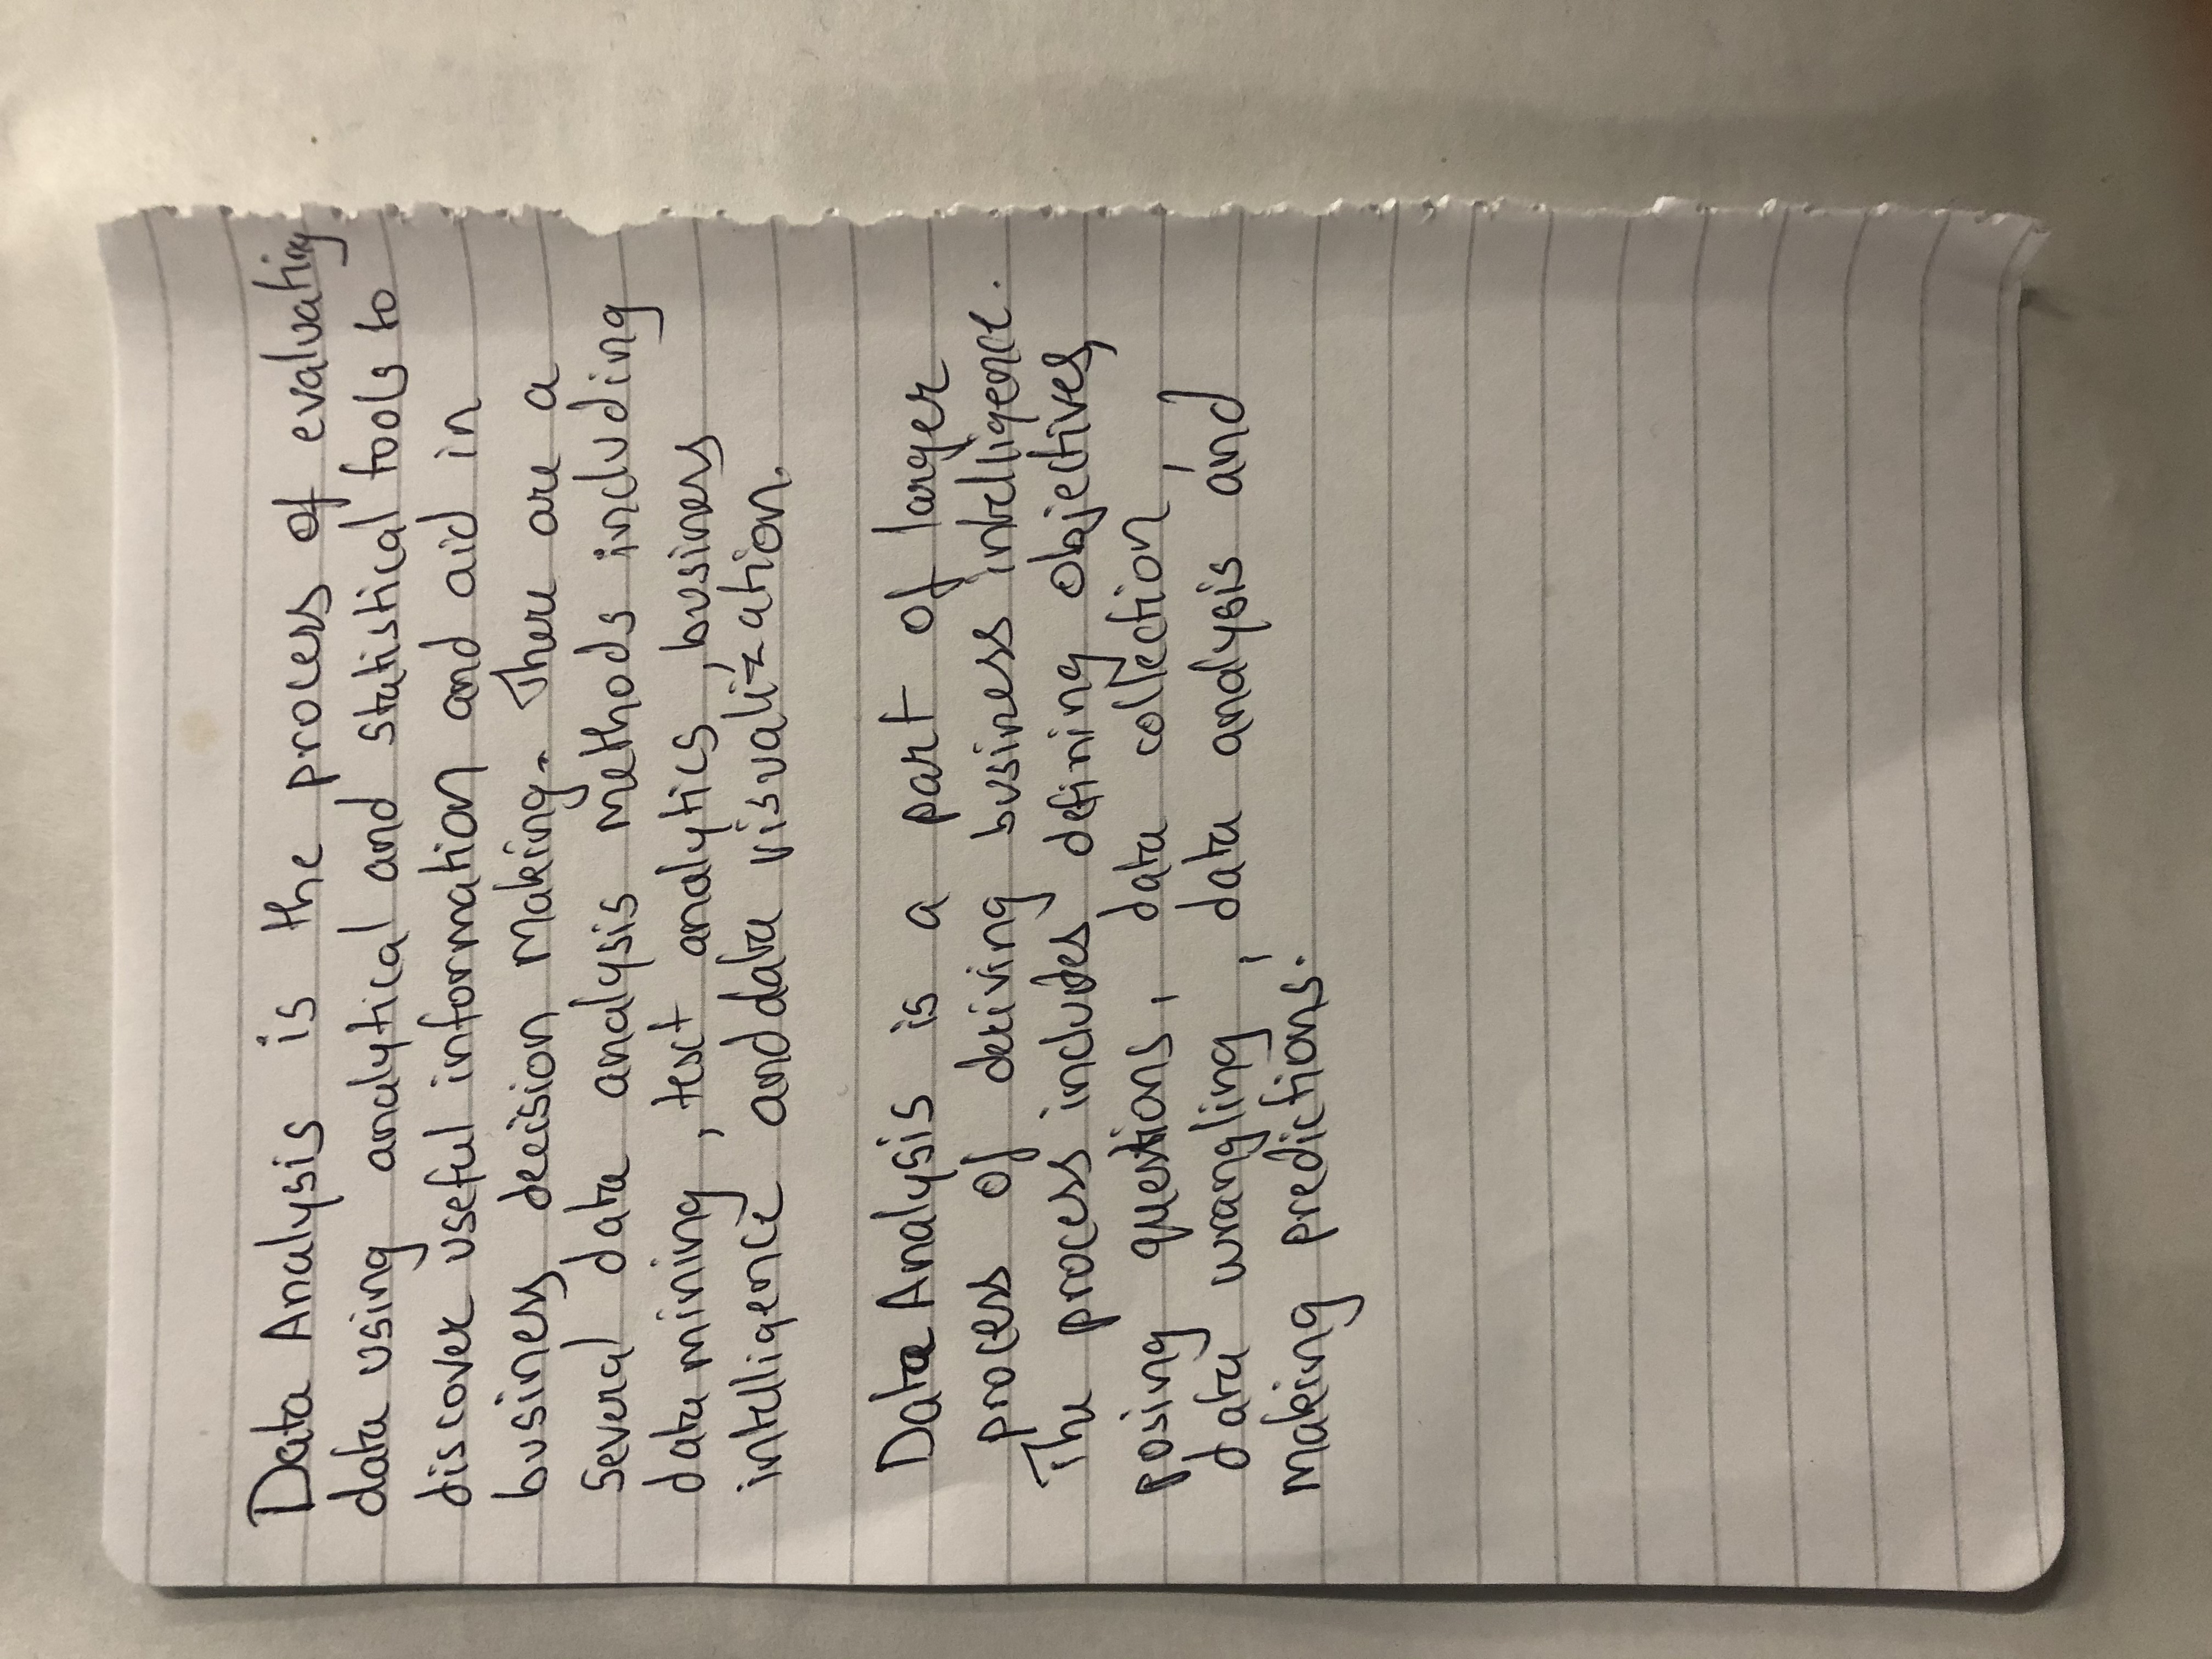 Data Analysis is the process of evaluating
data using analytical and statistical tools to
discover useful information and aid in
business decision making. There are a
several data analysis methods including
data mining, text analytics, business
intelligence and data visualization.
Data Analysis is a part of larger
process of deriving business intelligence.
The process includes defining objectives,
posing questions, data collection,
data wrangling, data analysis and
making predictions.